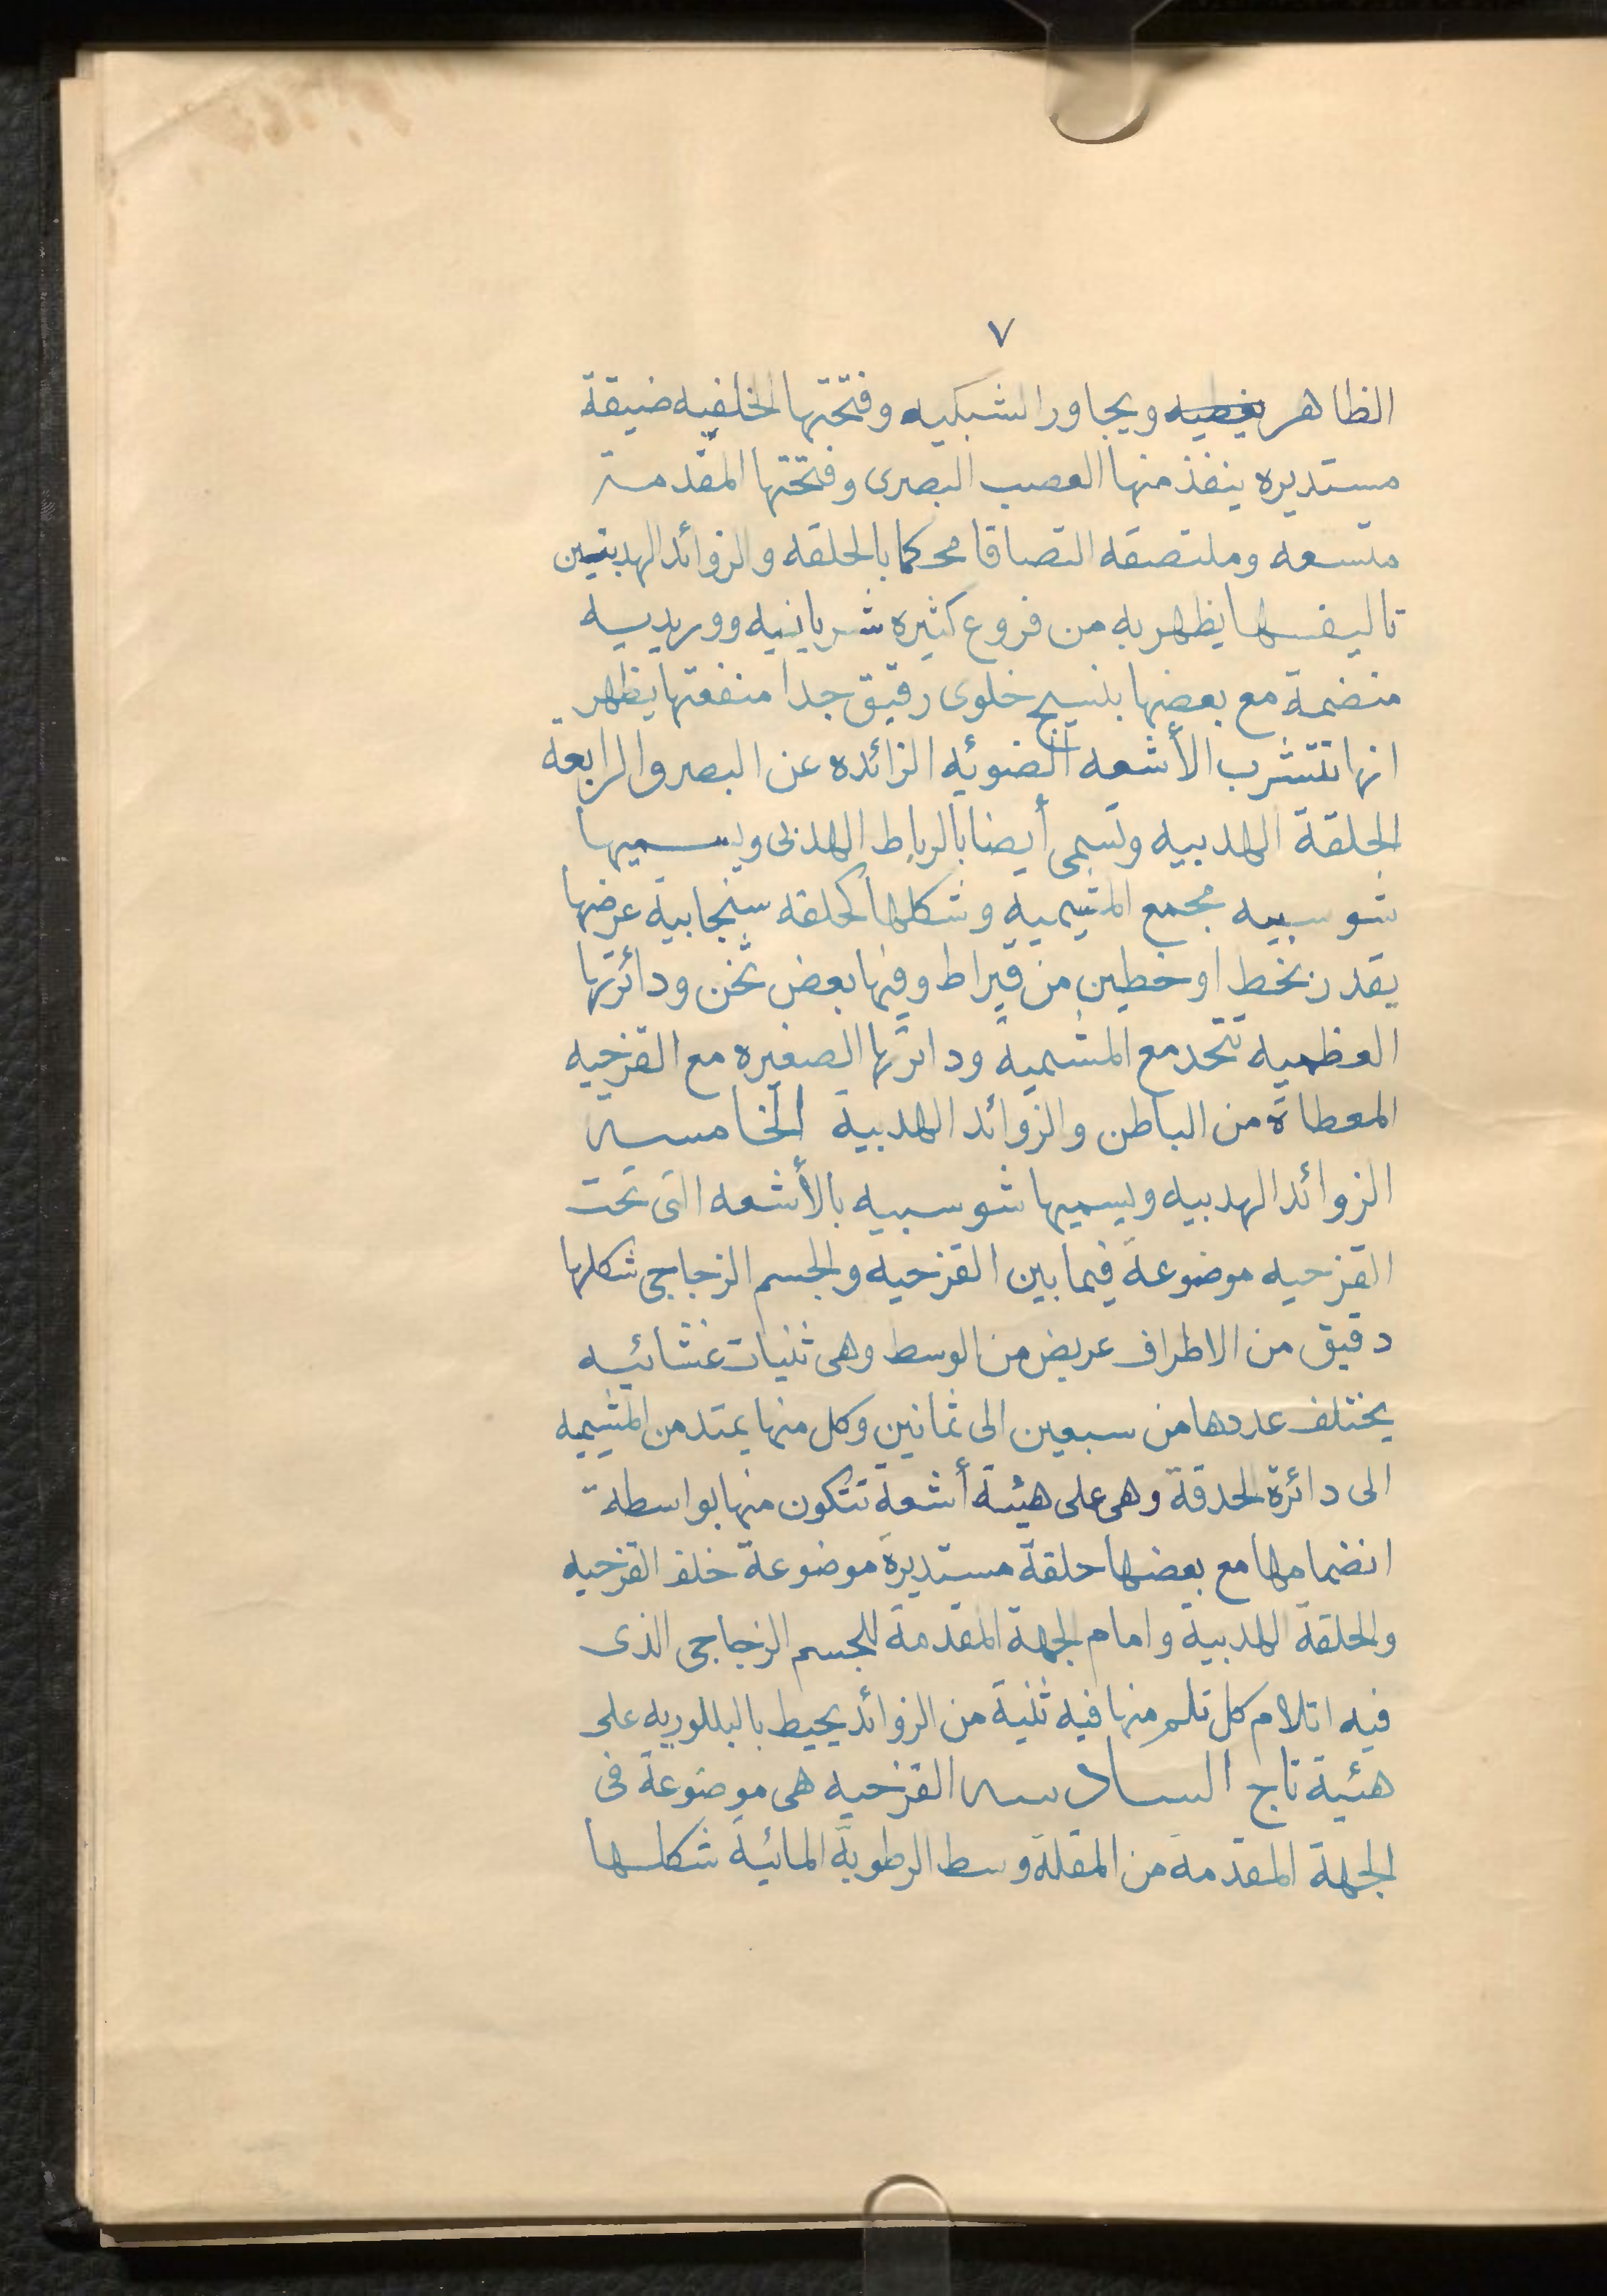 ٧
الظاهر يغطيه ويجاور الشبكيه وفتحتها الخلفيه ضيقة
مستديره ينفذ منها العصب البصرى وفتحتها المقدمة
متسعه وملتصقه التصاقا محكما بالحلقه والزوائد الهدبيتين
تاليفها يظهر به من فروع كثيره شريانيه ووريديه
منضمة مع بعضها بنسيج خلوى رقيق جدا منفعتها يظهر
انها تتشرب الأشعه الضوئيه الزائده عن البصر والرابعة
الحلقة الهدبيه وتسمى أيضا بالرباط الهدبى ويسميها
شوسيبه مجمع المشيميه وشكلها كحلقه سنجابية عرضها
يقدر بخط او خطين من قيراط وفيها بعض ثخن ودائرتها
العظميه تتحد مع المشميه ودائرتها الصغيره مع القزحيه
المعطاة من الباطن والزوائد الهدبية الخامسه
الزوائد الهدبيه ويسميها شوسبيه بالأشعه التى تحت
القزحيه موضوعة فيما بين القزحيه والجسم الزجاجى شكلها
دقيق من الاطراف عريض من الوسط وهى ثنيات غشائيه
يختلف عددها من سبعين الى ثمانين وكل منها يمتد من المشيميه
الى دائرة الحدقة وهى على هيئة أشعة تتكون منها بواسطة
انضمامها مع بعضها حلقة مستديرة موضوعة خلف القزحيه
والحلقة الهدبية وامام الجهة المقدمة للجسم الزجاجى الذى
فيه اتلام كل تلم منها فيه ثنية من الزوائد يحيط بالبللوريه على
هئية تاج السادسه القزحيه هى موضوعة فى
الجهة المقدمة من المقلة وسط الرطوبة المائية شكلها